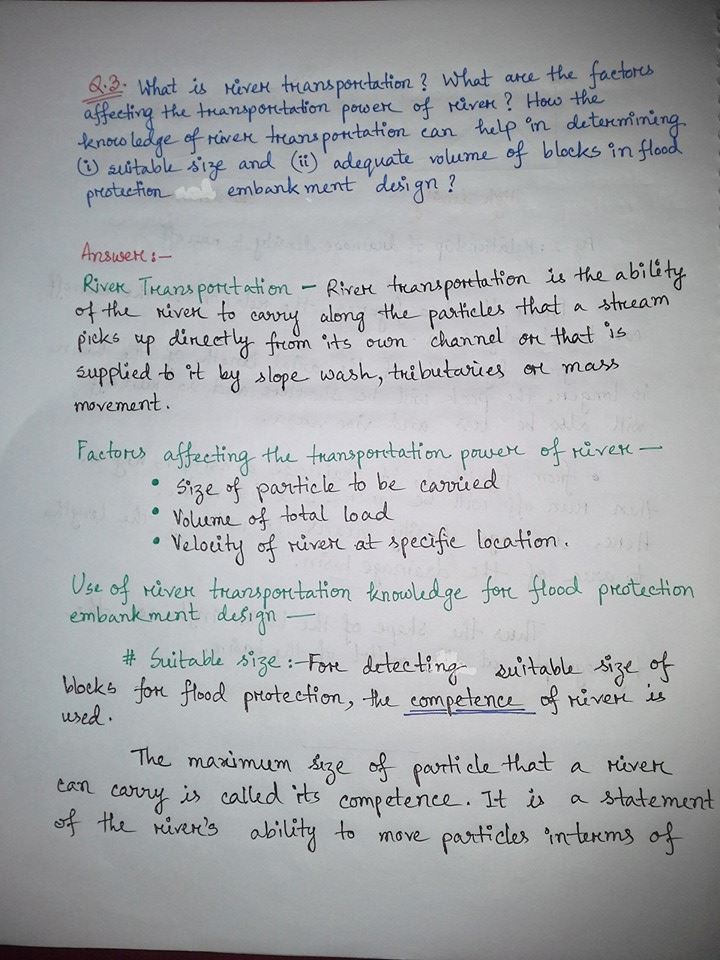 Q.3. What is river transportation? What are the factors
affecting the transportation power of river? How the
knowledge of river transportation can help in determining
(i) suitable size and (ii) adequate volume of blocks in flood
protection embankment design?
Answer:-
River Transportation - River transportation is the ability
of the river to carry along the particles that a stream
picks up directly from its own channel or that is
supplied to it by slope wash, tributaries or mass
movement.
Factors affecting the transportation power of river —
• Size of particle to be carried
• Volume of total load
• Velocity of river at specific location.
Use of river transportation knowledge for flood protection
embankment design —
# Suitable size :- For detecting suitable size of
blocks for flood protection, the competence of river is
used.
The maximum size of particle that a river
can carry is called its competence. It is a statement
of the river's ability to move particles interms of